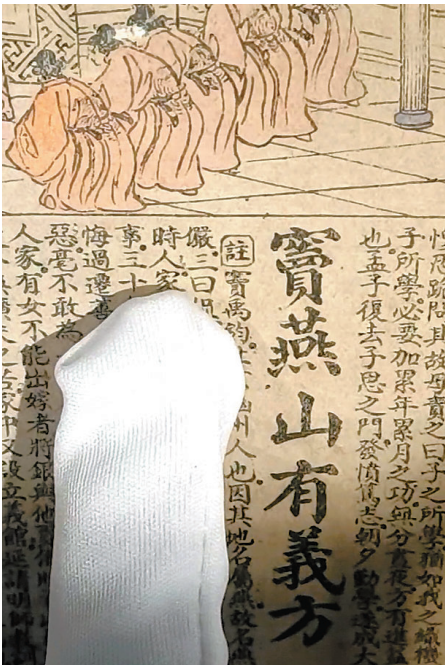 問其故母責之曰子之所學猶如我之機
子所學必要加累年累月之功無分晝夜方有進益
也孟子復去子思之門發憤篤志朝夕勤學遂成大
竇燕山有義方
註 竇禹鈞 州人也因其地名屬燕故名燕
儼三曰侃
時人家
事三十
悔過遷善
惡毫不敢為
人家有女不能出嫁者將銀與他
之苦家中又設立義館延請明師